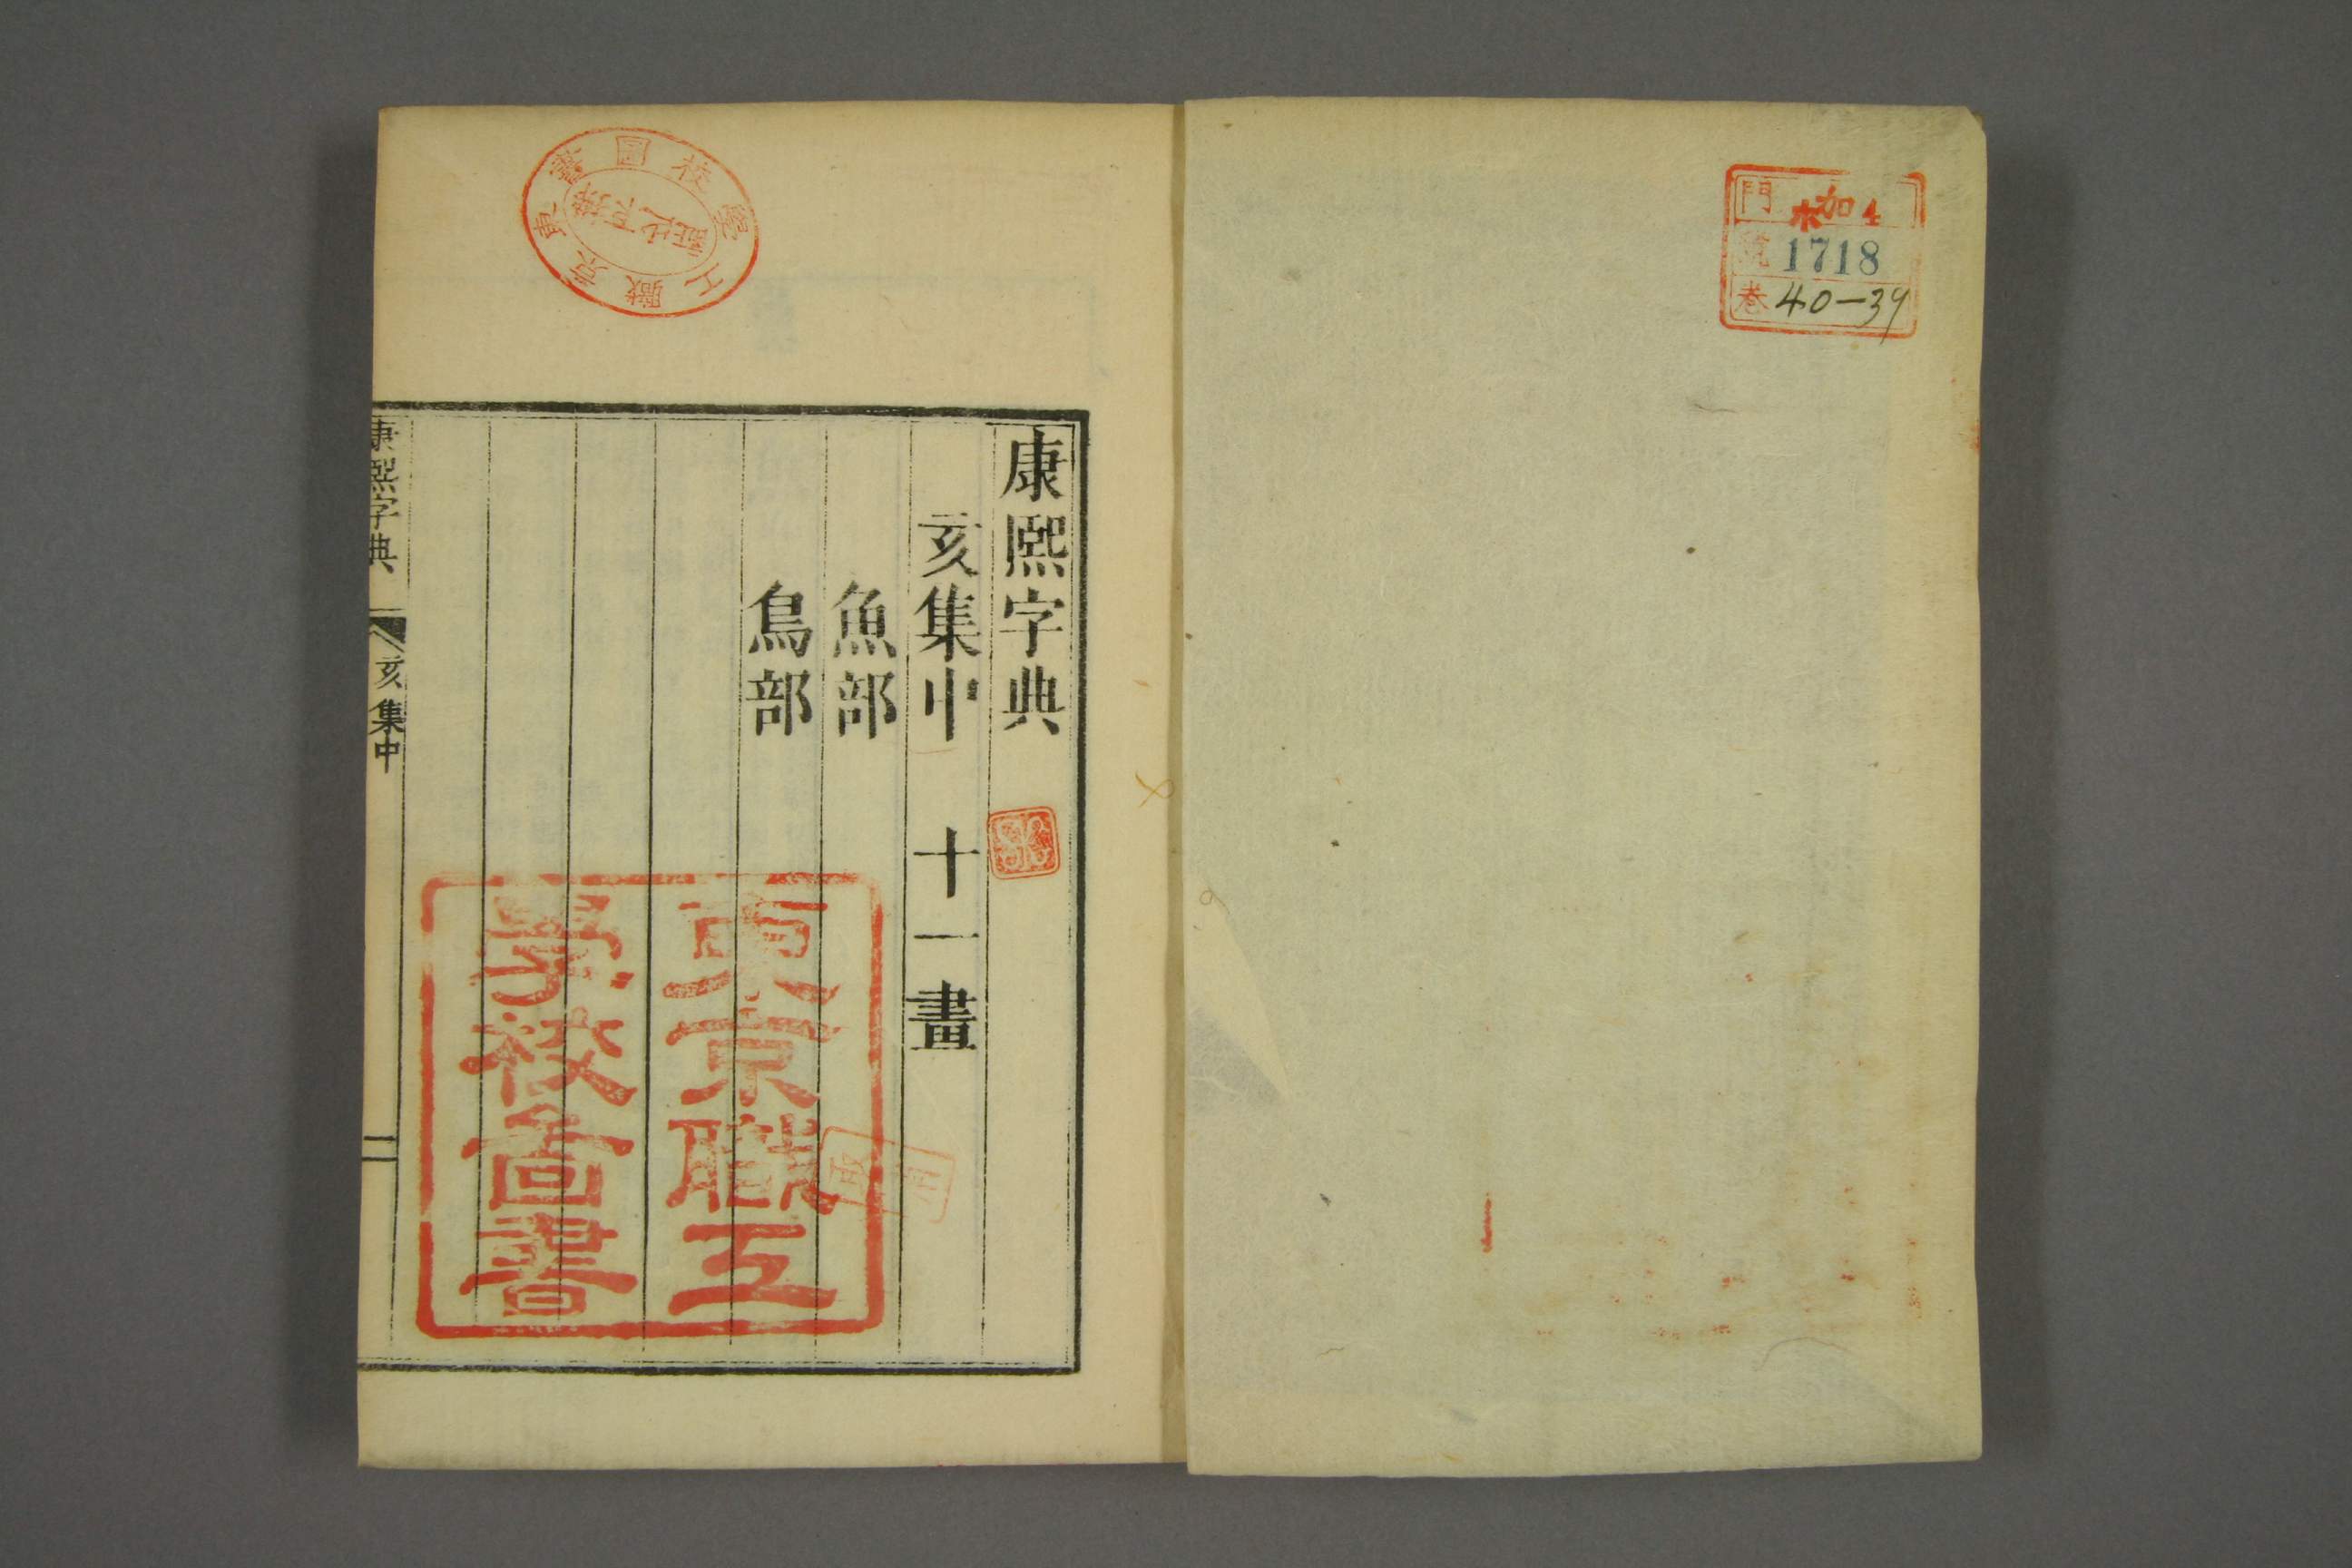 門 加4
號 1718
卷 40-39
康熙字典
亥集中 十一畫
魚部
鳥部
康熙字典 亥集中 一
東京職工
學校圖書
東京職工學校圖書